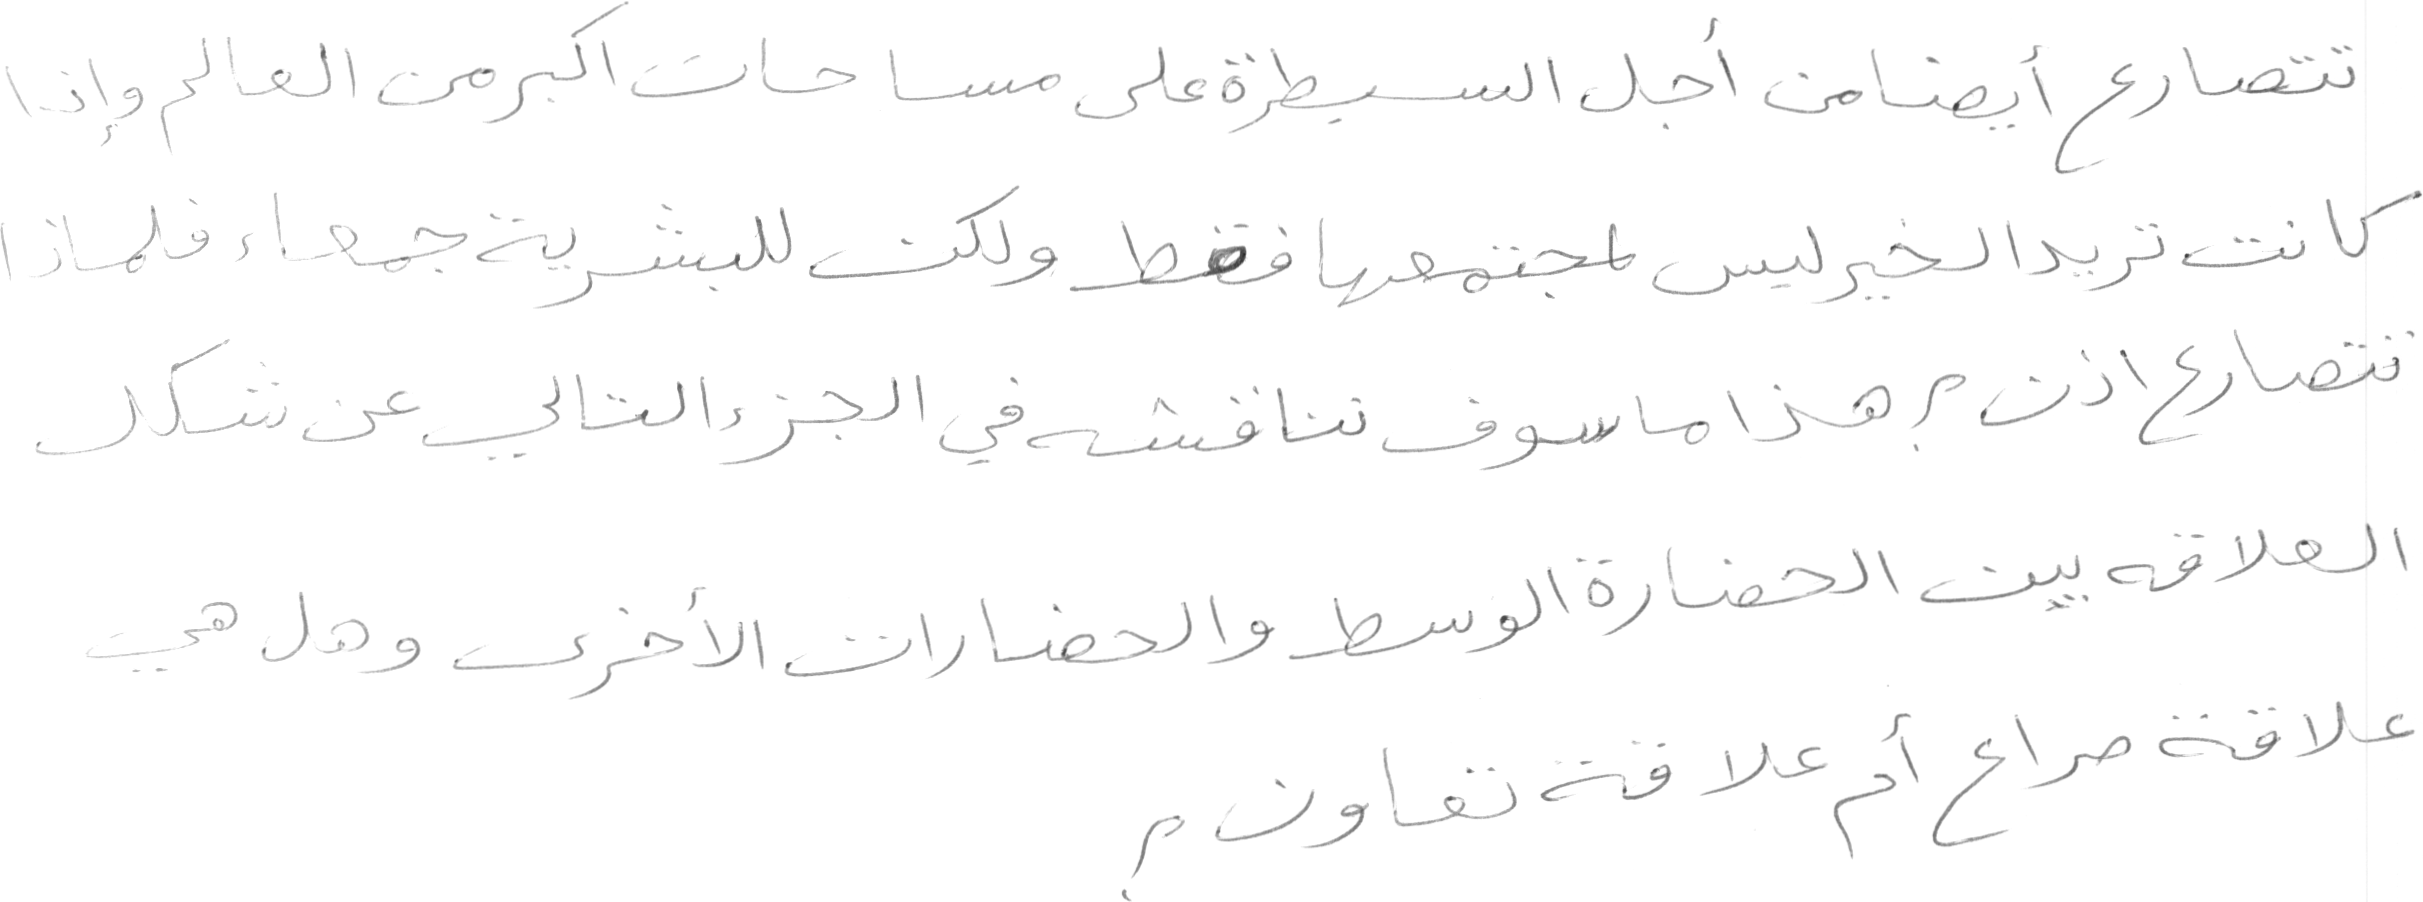 تتصارع أيضا من أجل السيطرة على مساحات اكبر من العالم وإذا
كانت تريد الخير ليس لمجتمعها فقط ولكن للبشرية جمعاء فلماذا
تتصارع اذن ؟ هذا ما سوف نناقشه في الجزء التالي عن شكل
العلاقه بين الحضارة الوسط والحضارات الأخرى وهل هي
علاقة صراع أم علاقة تعاون ؟